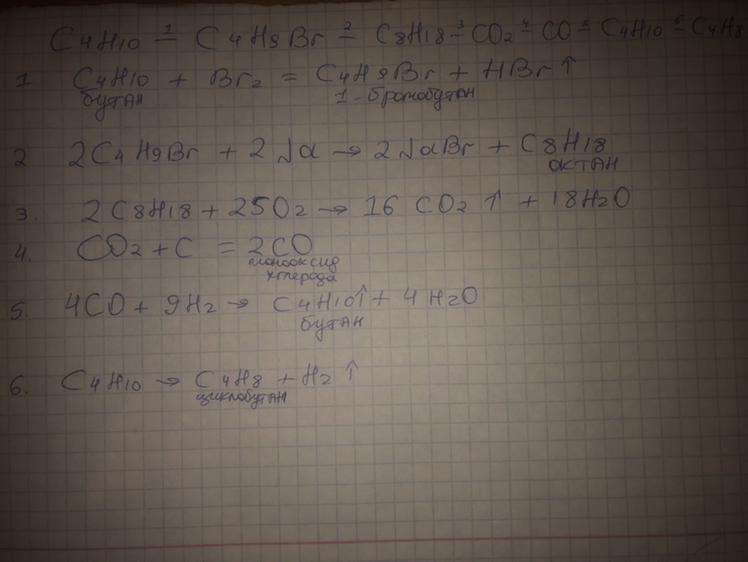 C4H10 1— C4H9Br 2= C8H18 3— CO2 4— CO 5— C4H10 6— C4H8
1 C4H10 + Br2 = C4H9Br + HBr↑
бутан 1-бромобутан
2 2C4H9Br + 2Na → 2NaBr + C8H18
октан
3. 2C8H18 + 25O2 → 16 CO2 ↑ + 18H2O
4. CO2 + C = 2CO
монооксид
углерода
5. 4CO + 9H2 → C4H10↑ + 4H2O
бутан
6. C4H10 → C4H8 + H2 ↑
циклобутан